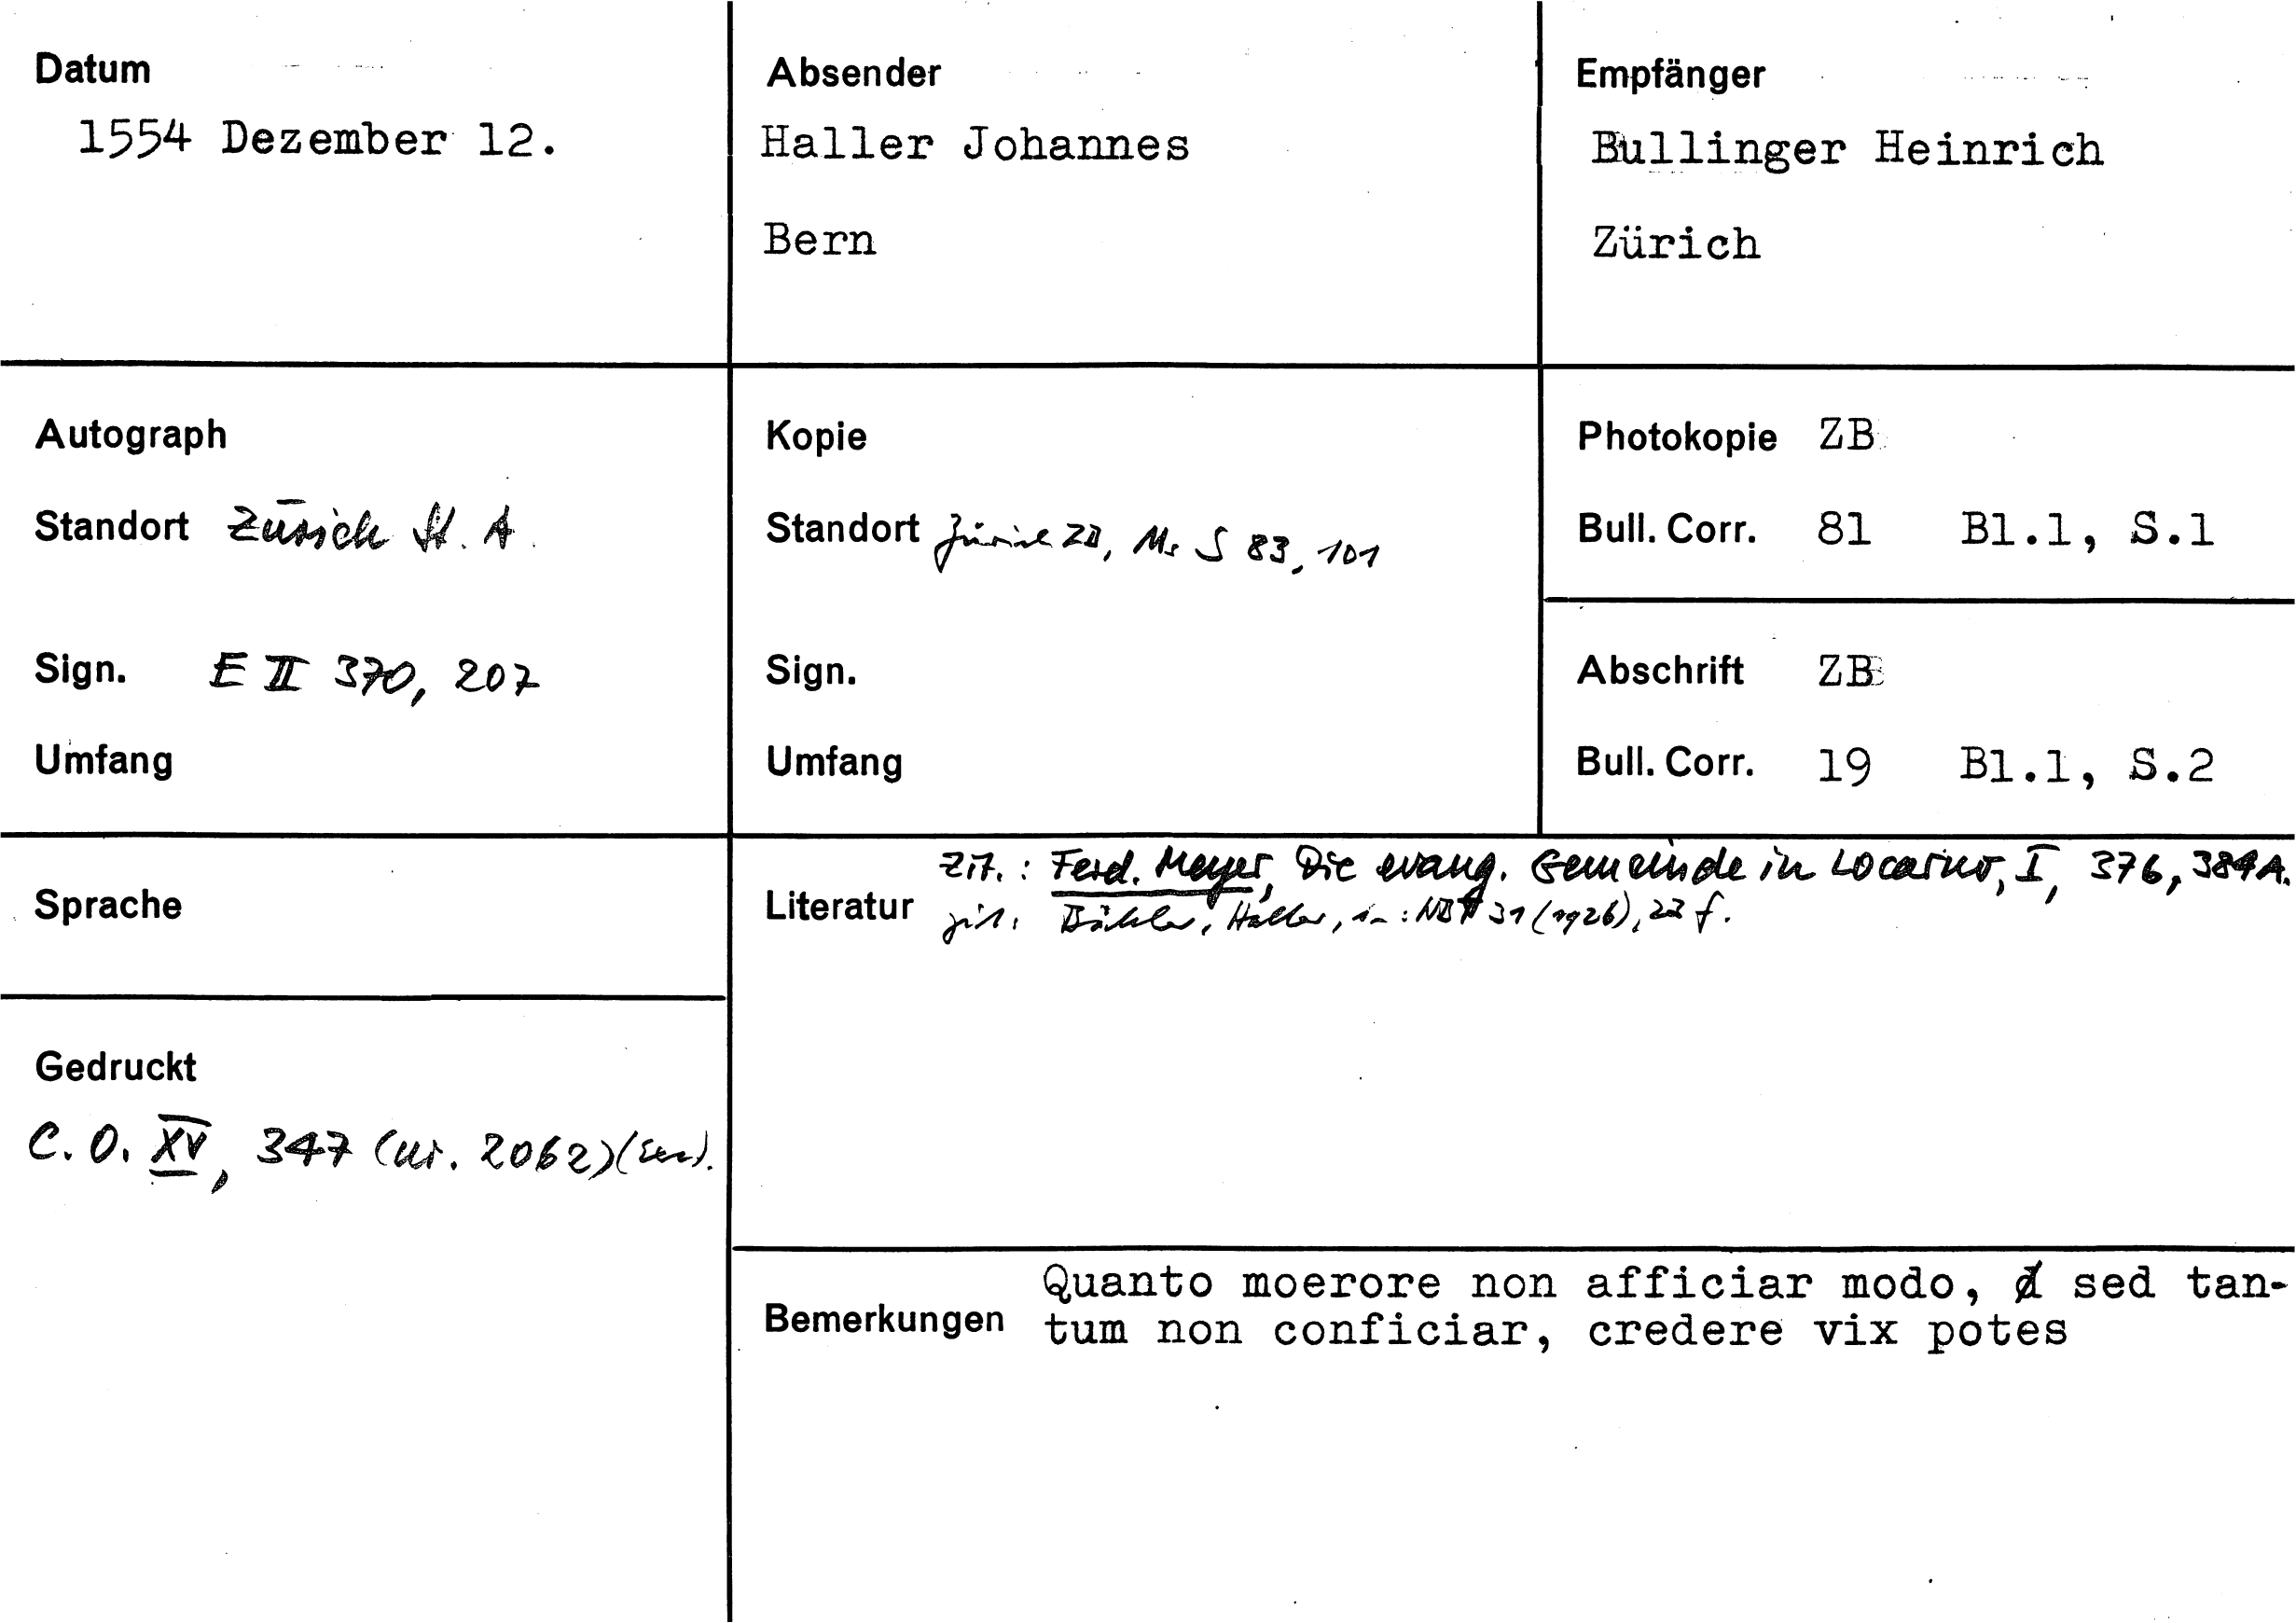 Datum
1554 Dezember 12.
Absender
Haller Johannes
Bern
Empfänger
Bullinger Heinrich
Zürich
Autograph
Standort Zürich St. A.
Sign. E II 370, 207
Umfang
Kopie
Standort Zürich ZB, Ms S 83, 101
Sign.
Umfang
Photokopie ZB
Bull. Corr. 81 Bl.1, S.1
Abschrift ZB
Bull. Corr. 19 Bl.1, S.2
Sprache
Gedruckt
C. O. XV, 347 (nr. 2062)
Zit.: Ferd. Meyer, Die evang. Gemeinde in Locarno, I, 376, 384 A.
Literatur zit. Bähler, Haller, in: NBT 31 (1926), 22 f.
Quanto moerore non afficiar modo, sed tan-
Bemerkungen tum non conficiar, credere vix potes